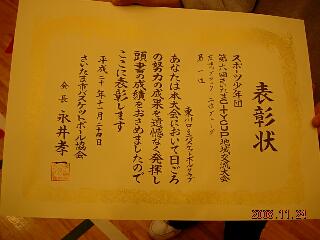 表彰状
スポーツ少年団
第六回さいたまCITYCUP地域交流大会
第一位
あなたは本大会において日ごろ
の努力の成果を遺憾なく発揮し
頭書の成績をおさめましたので
ここに表彰します
平成二十年十一月二十四日
さいたま市バスケットボール協会
会長 永井孝一
2008.11.24